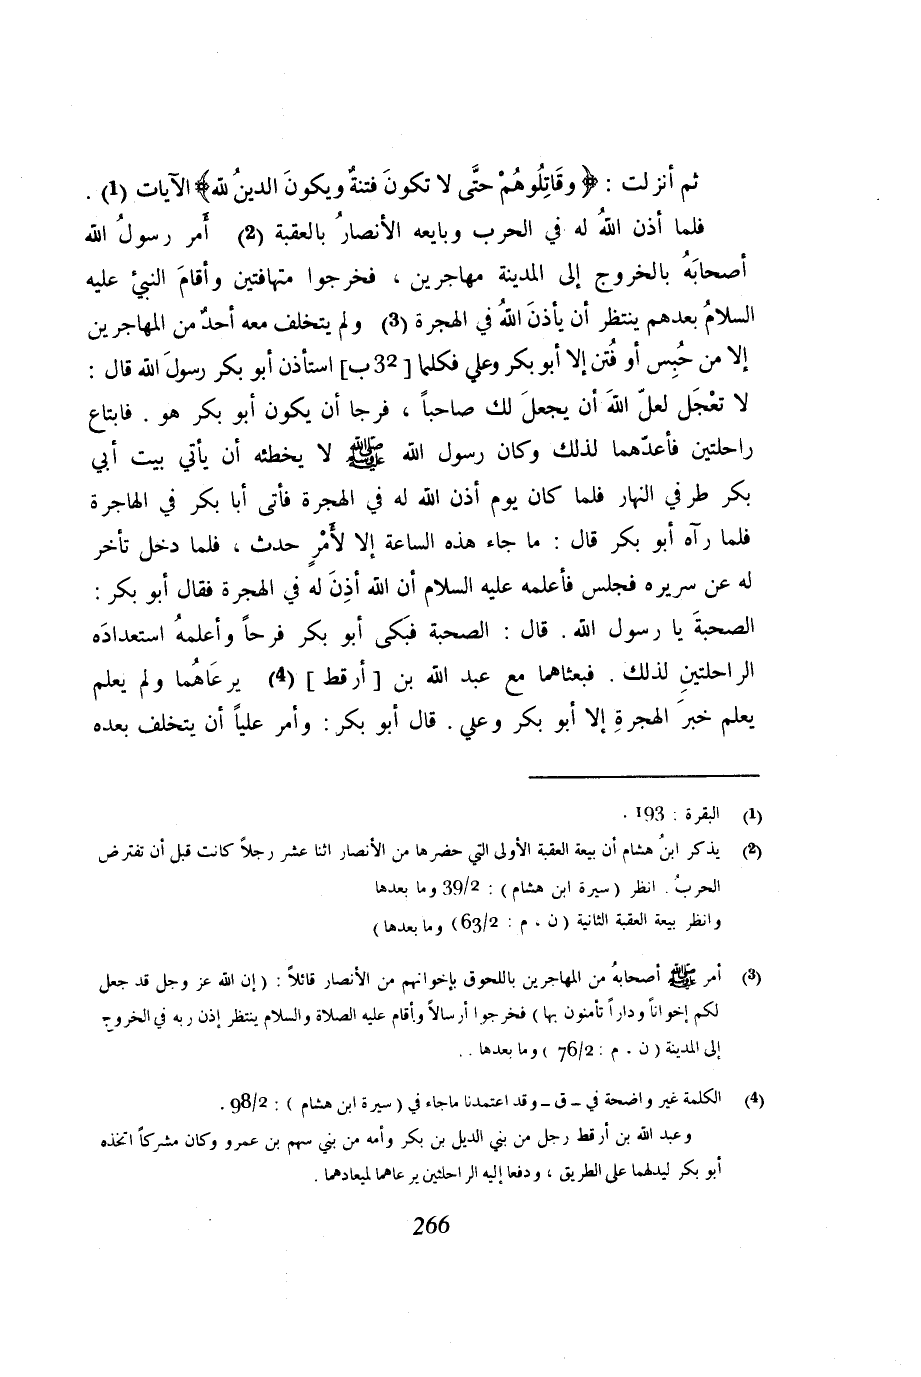 ثم أنزلت : ﴿ وقَاتِلُوهُمْ حتَّى لا تكونَ فتنةٌ ويكونَ الدينُ لله﴾ الآيات (1) .
فلما أذن اللهُ له في الحرب وبايعه الأنصارُ بالعقبة (2) أَمر رسولُ الله
أصحابَهُ بالخروج إلى المدينة مهاجرين ، فخرجوا متهافتين وأقامَ النبيُّ عليه
السلامُ بعدهم ينتظر أن يأذنَ اللهُ في الهجرة (3) ولم يتخلف معه أحدٌ من المهاجرين
إلا من حُبِس أو فُتن إلا أبو بكر وعلي فكلما [ 32ب] استأذن أبو بكر رسولَ الله قال :
لا تعْجَل لعلّ اللهَ أن يجعلَ لك صاحباً ، فرجا أن يكون أبو بكر هو . فابتاع
راحلتين فأعدّهما لذلك وكان رسول الله ﷺ لا يخطئه أن يأتي بيت أبي
بكر طرفي النهار فلما كان يوم أذن الله له في الهجرة فأتى أبا بكر في الهاجرة
فلما رآه أبو بكر قال : ما جاء هذه الساعة إلا لأَمْرٍ حدث ، فلما دخل تأخر
له عن سريره فجلس فأعلمه عليه السلام أن الله أذِنَ له في الهجرة فقال أبو بكر :
الصحبةَ يا رسول الله . قال : الصحبة فبَكى أبو بكر فرحاً وأعلمهُ استعدادَه
الراحلتينِ لذلك . فبعثاهما مع عبد الله بن [ أرقط ] (4) يرعَاهُما ولم يعلم
يعلم خبرَ الهجرةِ إلا أبو بكر وعلي . قال أبو بكر : وأمر علياً أن يتخلف بعده
(1) البقرة : 193 .
(2) يذكر ابنُ هشام أن بيعة العقبة الأولى التي حضرها من الأنصار اثنا عشر رجلاً كانت قبل أن تفترض
الحربُ . انظر ( سيرة ابن هشام ) : 39/2 وما بعدها
وانظر بيعة العقبة الثانية ( ن . م : 63/2) وما بعدها )
(3) أمر ﷺ أصحابهُ من المهاجرين باللحوق بإخوانهم من الأنصار قائلاً : ( إن الله عز وجل قد جعل
لكم إخواناً وداراً تأمنون بها ) فخرجوا أرسالاً وأقام عليه الصلاة والسلام ينتظر إذن ربه في الخروج
إلى المدينة ( ن . م : 76/2 ) وما بعدها . .
(4) الكلمة غير واضحة في ـ ق ـ وقد اعتمدنا ماجاء في ( سيرة ابن هشام ) : 98/2 .
وعبد الله بن أرقط رجل من بني الديل بن بكر وأمه من بني سهم بن عمرو وكان مشركاً اتخذه
أبو بكر ليدلهما على الطريق ، ودفعا إليه الراحلتين يرعاهما لميعادهما .
266